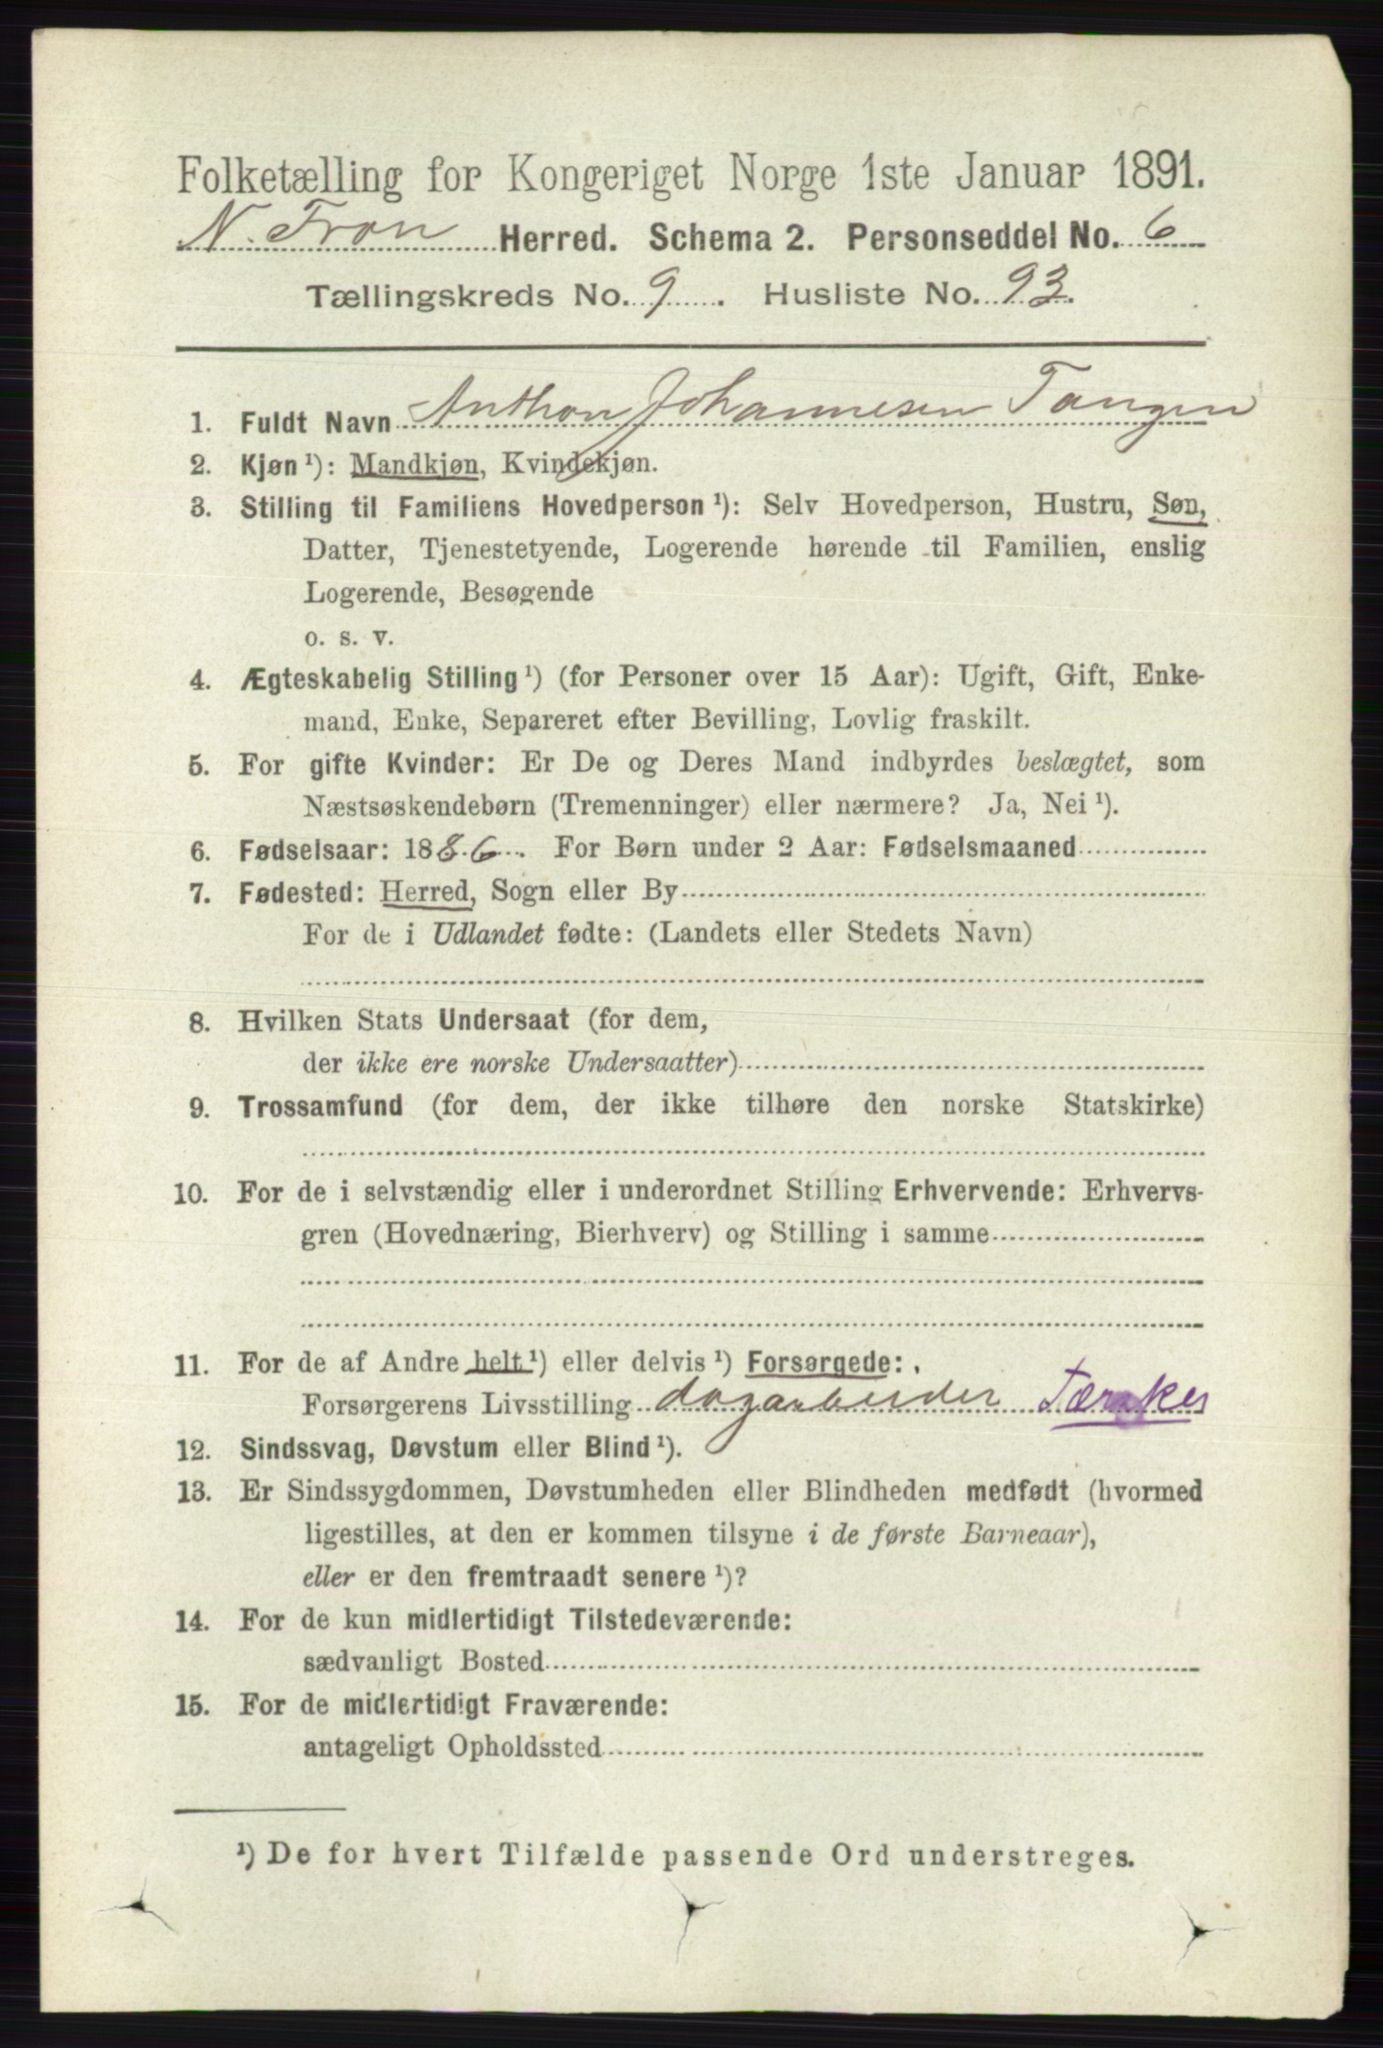 Folketælling for Kongeriget Norge 1ste Januar 1891.
N. Fron Herred. Schema 2. Personseddel No. 6
Tællingskreds No. 9. Husliste No. 93.
1. Fuldt Navn Anthon Johannesen Tangen
2. Kjøn ¹): Mandkjøn, Kvindekjøn.
3. Stilling til Familiens Hovedperson ¹): Selv Hovedperson, Hustru, Søn,
Datter, Tjenestetyende, Logerende hørende til Familien, enslig
Logerende, Besøgende
o. s. v.
4. Ægteskabelig Stilling ¹) (for Personer over 15 Aar): Ugift, Gift, Enke-
mand, Enke, Separeret efter Bevilling, Lovlig fraskilt.
5. For gifte Kvinder: Er De og Deres Mand indbyrdes beslægtet, som
Næstsøskendebørn (Tremenninger) eller nærmere? Ja, Nei ¹).
6. Fødselsaar: 1886. For Børn under 2 Aar: Fødselsmaaned
7. Fødested: Herred, Sogn eller By
For de i Udlandet fødte: (Landets eller Stedets Navn)
8. Hvilken Stats Undersaat (for dem,
der ikke ere norske Undersaatter)
9. Trossamfund (for dem, der ikke tilhøre den norske Statskirke)
10. For de i selvstændig eller i underordnet Stilling Erhvervende: Erhvervs-
gren (Hovednæring, Bierhverv) og Stilling i samme
11. For de af Andre helt ¹) eller delvis ¹) Forsørgede:
Forsørgerens Livsstilling dagarbeider
12. Sindssvag, Døvstum eller Blind ¹).
13. Er Sindssygdommen, Døvstumheden eller Blindheden medfødt (hvormed
ligestilles, at den er kommen tilsyne i de første Barneaar),
eller er den fremtraadt senere ¹)?
14. For de kun midlertidigt Tilstedeværende:
sædvanligt Bosted
15. For de midlertidigt Fraværende:
antageligt Opholdssted
¹) De for hvert Tilfælde passende Ord understreges.